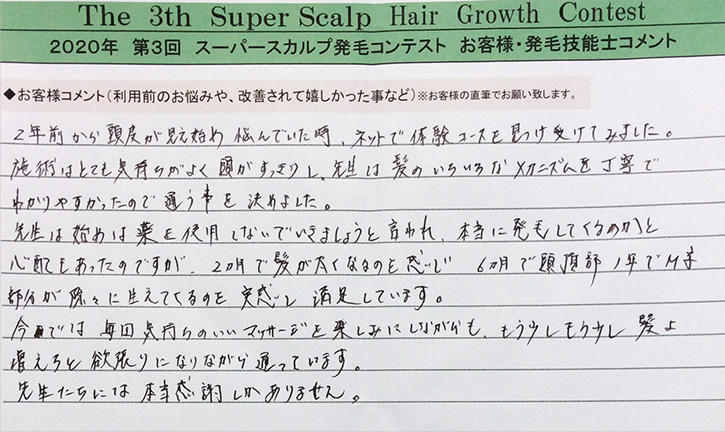 The 3th Super Scalp Hair Growth Contest
2020年 第3回 スーパースカルプ発毛コンテスト お客様・発毛技能士コメント
◆お客様コメント(利用前のお悩みや、改善されて嬉しかった事など)※お客様の直筆でお願い致します。
2年前から頭皮が見え始め 悩んでいた時、ネットで体験コースを見つけ受けてみました。
施術はとても気持ちがよく頭がすっきりし、先生は髪のいろいろなメカニズムを丁寧で
わかりやすかったので通う事を決めました。
先生は始めは薬を使用しないでいきましょうと言われ、本当に発毛してくるのかと
心配もあったのですが、2ヵ月で髪が太くなるのを感じ 6ヵ月で頭頂部 1年でM字
部分が除々に生えてくるのを実感し 満足しています。
今では毎回気持ちのいいマッサージを楽しみにしながらも、もう少しもう少し 髪よ
増えろと欲張りになりながら通っています。
先生たちには本当感謝しかありません。